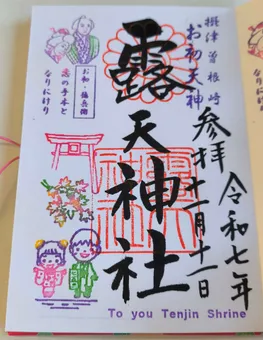 令和七年
参拝十一月十一日
摂津曽根崎
お初天神
露天神社
お初・徳兵衛
恋の手本と
なりにけり
To you Tenjin Shrine